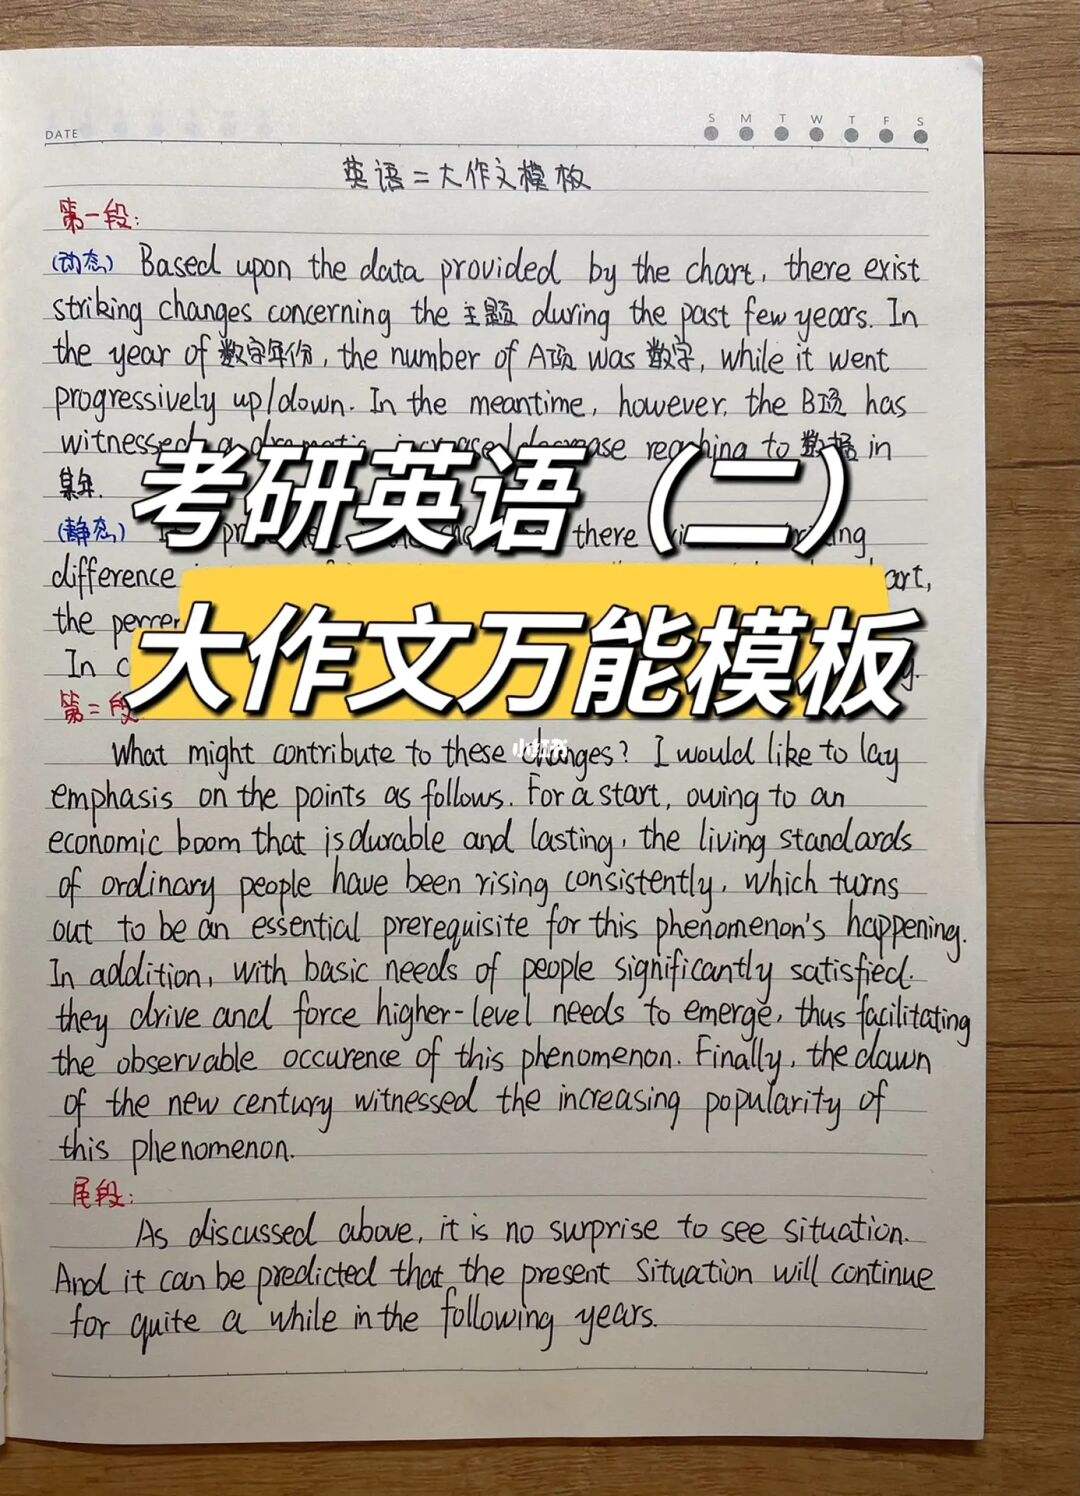 DATE
S M T W T F S
英语二大作文模板
第一段:
(动态) Based upon the data provided by the chart, there exist
striking changes concerning the 主题 during the past few years. In
the year of 数字年份, the number of A项 was 数字, while it went
progressively up/down. In the meantime, however, the B项 has
witnessed a dramatic increase/decrease reaching to 数据 in
某年.
考研英语（二）
(静态) there
difference
大作文万能模板
the
In
第二段
What might contribute to these changes? I would like to lay
小红书
emphasis on the points as follows. For a start, owing to an
economic boom that is durable and lasting, the living standards
of ordinary people have been rising consistently, which turns
out to be an essential prerequisite for this phenomenon's happening.
In addition, with basic needs of people significantly satisfied.
they drive and force higher-level needs to emerge, thus facilitating
the observable occurence of this phenomenon. Finally, the dawn
of the new century witnessed the increasing popularity of
this phenomenon.
尾段:
As discussed above, it is no surprise to see situation.
And it can be predicted that the present situation will continue
for quite a while in the following years.